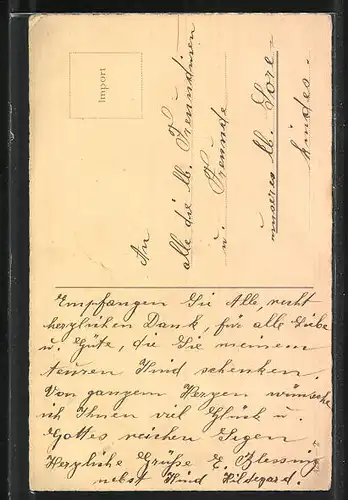 Import
An
alle die lb. Freundinen
u. Freunde
unseres lb. Lore-
kindes.
Empfangen Sie Alle, recht
herzlichen Dank, für alle Liebe
u. Güte, die Sie meinem
teuren Kind schenken.
Von ganzem Herzen wünsche
ich Ihnen viel Glück u.
Gottes reichen Segen
Herzliche Grüße E. Blessing
nebst Kind Hildegard.